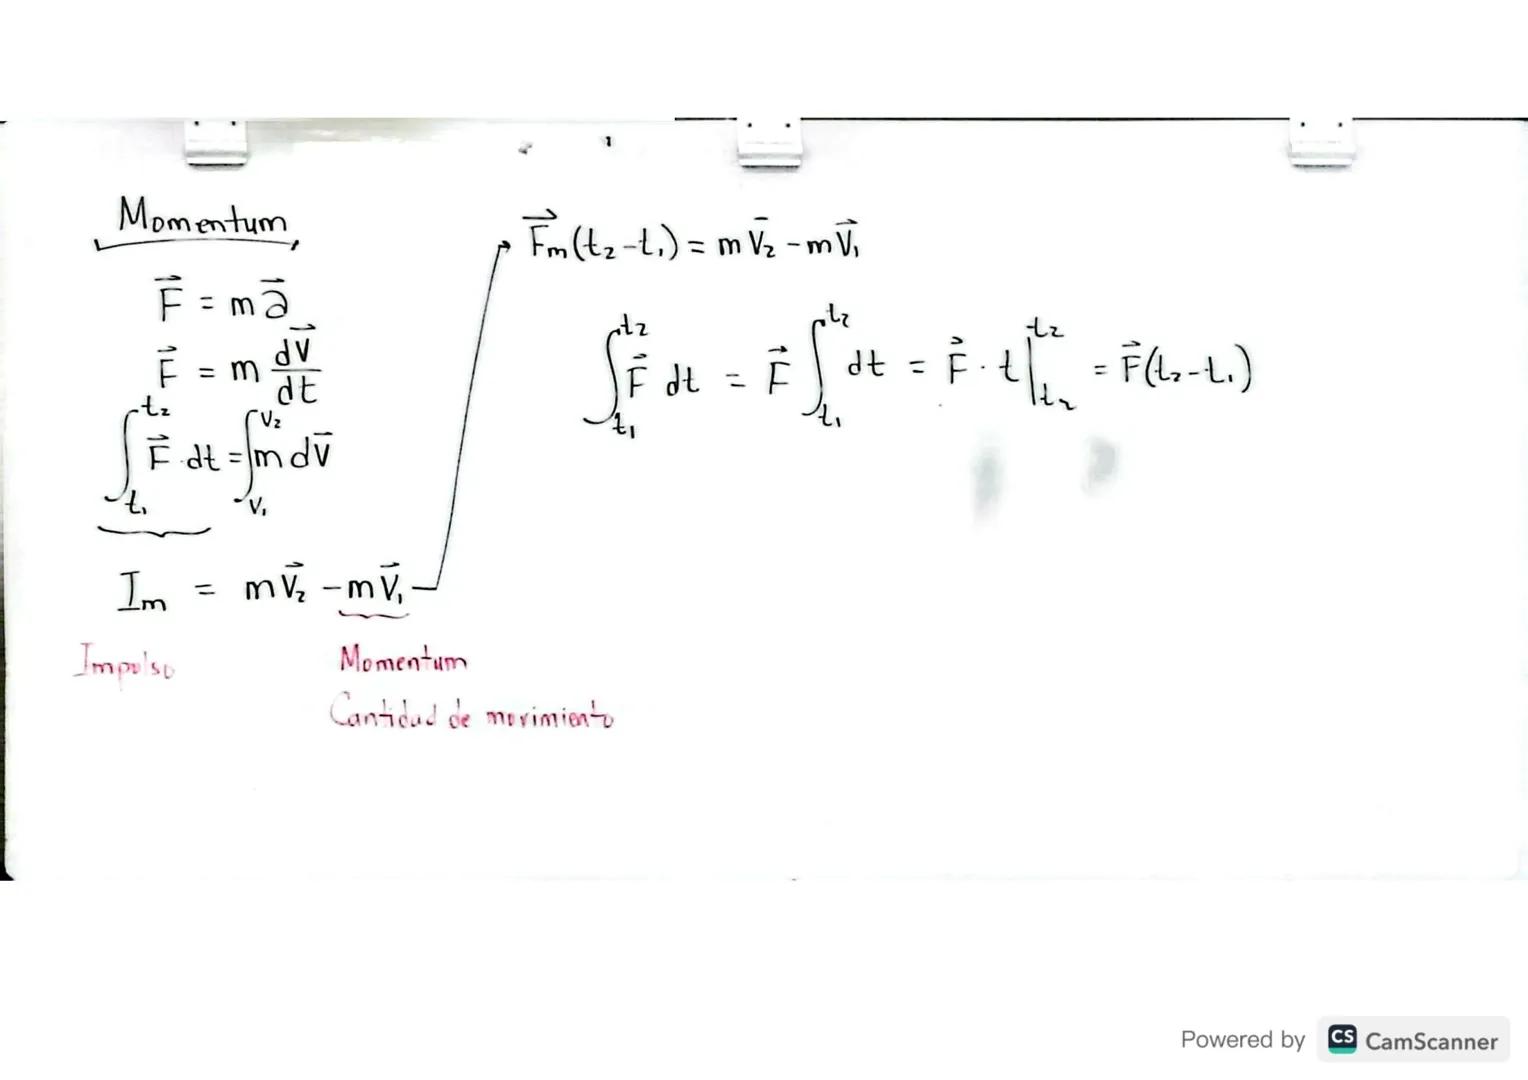 Momentum
F⃗ = m a⃗
F⃗ = m dV⃗/dt
∫_{t₁}^{t₂} F⃗ dt = ∫_{V₁}^{V₂} m dV⃗
Iₘ = m V⃗₂ - m V⃗₁
Impulso
Momentum
Cantidad de movimiento
F⃗ₘ(t₂-t₁) = m V̄₂ - m V⃗₁
∫_{t₁}^{t₂} F⃗ dt = F⃗ ∫_{t₁}^{t₂} dt = F⃗ · t |_{t₂}^{t₂} = F⃗(t₂-t₁)
Powered by CS CamScanner